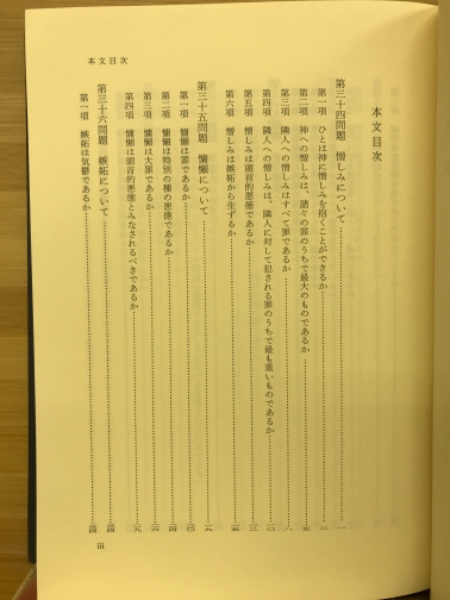 本文目次
本文目次
第三十四問題 憎しみについて
第一項 ひとは神に憎しみを抱くことができるか
第二項 神への憎しみは、諸々の罪のうちで最大のものであるか
第三項 隣人への憎しみはすべて罪であるか
第四項 隣人への憎しみは、隣人に対して犯される罪のうちで最も重いものであるか
第五項 憎しみは頭首的悪徳であるか
第六項 憎しみは嫉妬から生ずるか
第三十五問題 懶惰について
第一項 懶惰は罪であるか
第二項 懶惰は特別の種の悪徳であるか
第三項 懶惰は大罪であるか
第四項 懶惰は頭首的悪徳とみなされるべきであるか
第三十六問題 嫉妬について
第一項 嫉妬は気鬱であるか
iii